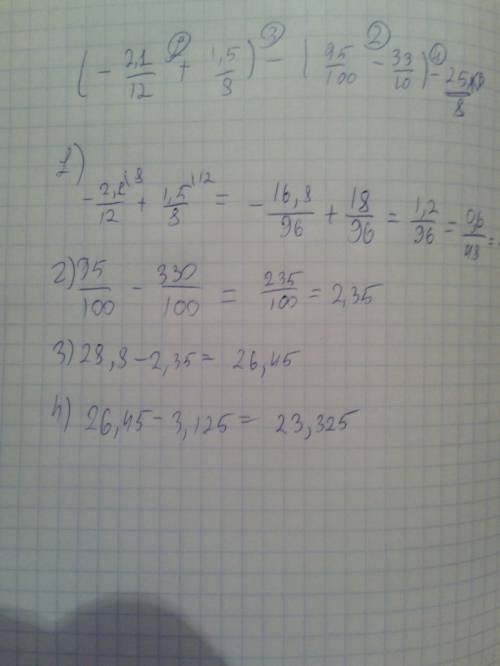 (- 2,1/12 + 1,5/8) - (95/100 - 33/10) - 25/8
1)
- 2,1/12 + 1,5/8 = - 16,8/96 + 18/96 = 1,2/96 = 0,6/48 =
2) 95/100 - 330/100 = 235/100 = 2,35
3) 28,8 - 2,35 = 26,45
4) 26,45 - 3,125 = 23,325